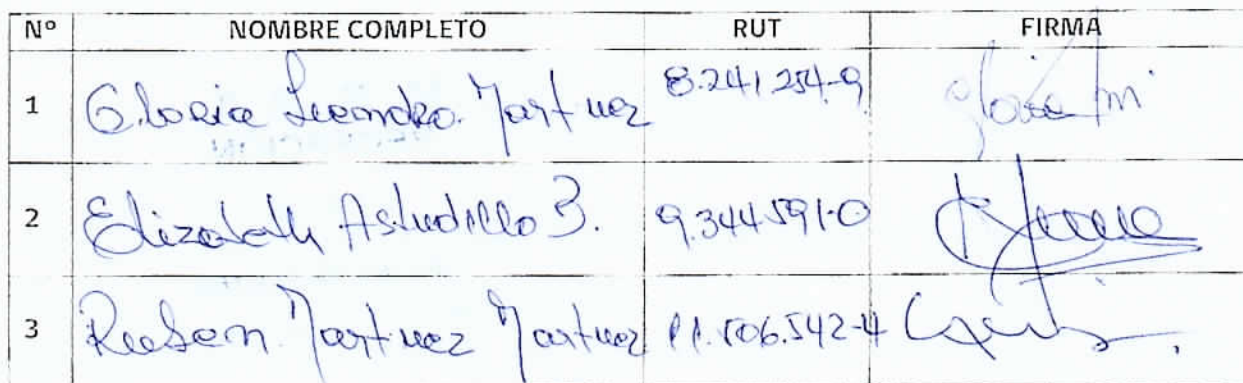 Nº NOMBRE COMPLETO RUT FIRMA
1 Gloria Leandro Martinez 8.241.254-9
2 Elizabeth Astudillo B. 9.344.591-0
3 Ruben Martinez Martinez 11.506.542-4